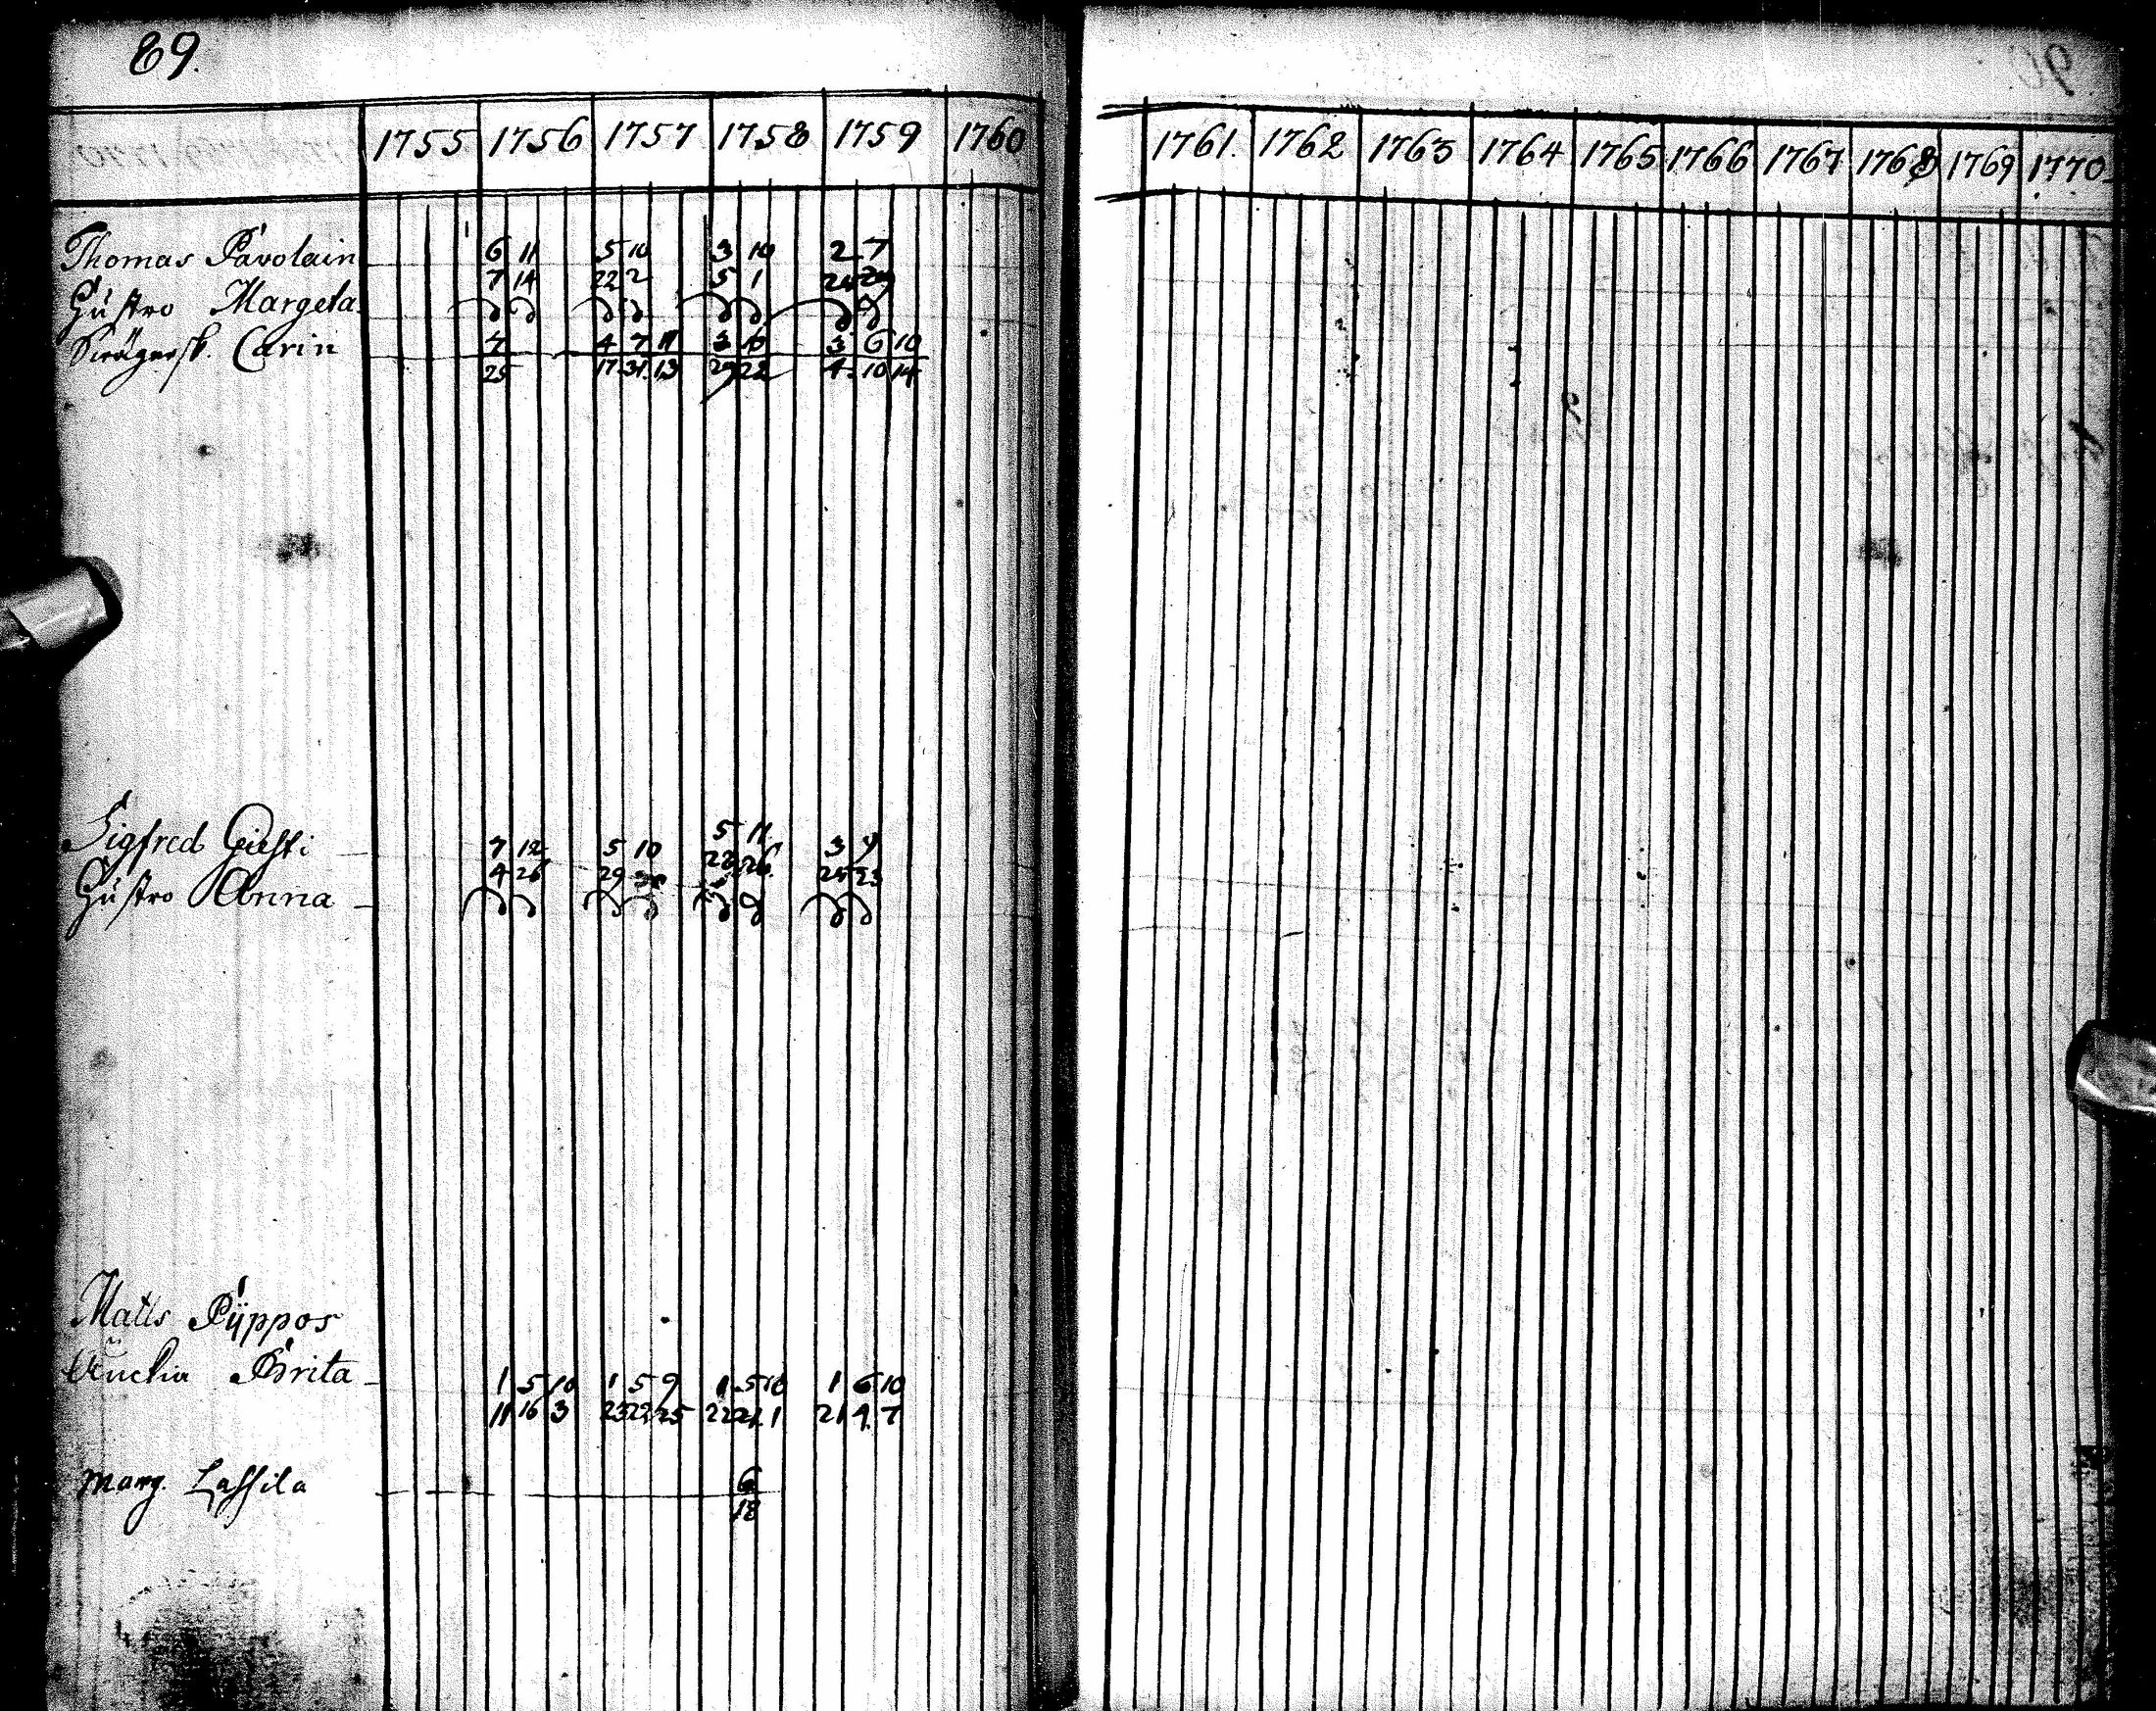 89.
1755 1756 1757 1758 1759 1760 1761. 1762 1763 1764 1765 1766 1767 1768 1769 1770
Thomas Påvolain 6 11 5 10 3 10 2 7
7 14 22 2 5 1 24
Hustro Margeta
Swägersk. Carin 7 4 7 11 3 10 3 6 10
25 17 31 13 29 22 4 10 14
Sigfred 7 12 5 10 5 11 3 9
4 26 29 22 26 25 23
Hustro Anna
Matts Pÿppos
Enckia Brita 1 5 10 1 5 9 1 5 10 1 6 10
11 16 3 23 22 25 22 21 1 21 4 7
Marg. Lassila 6
18